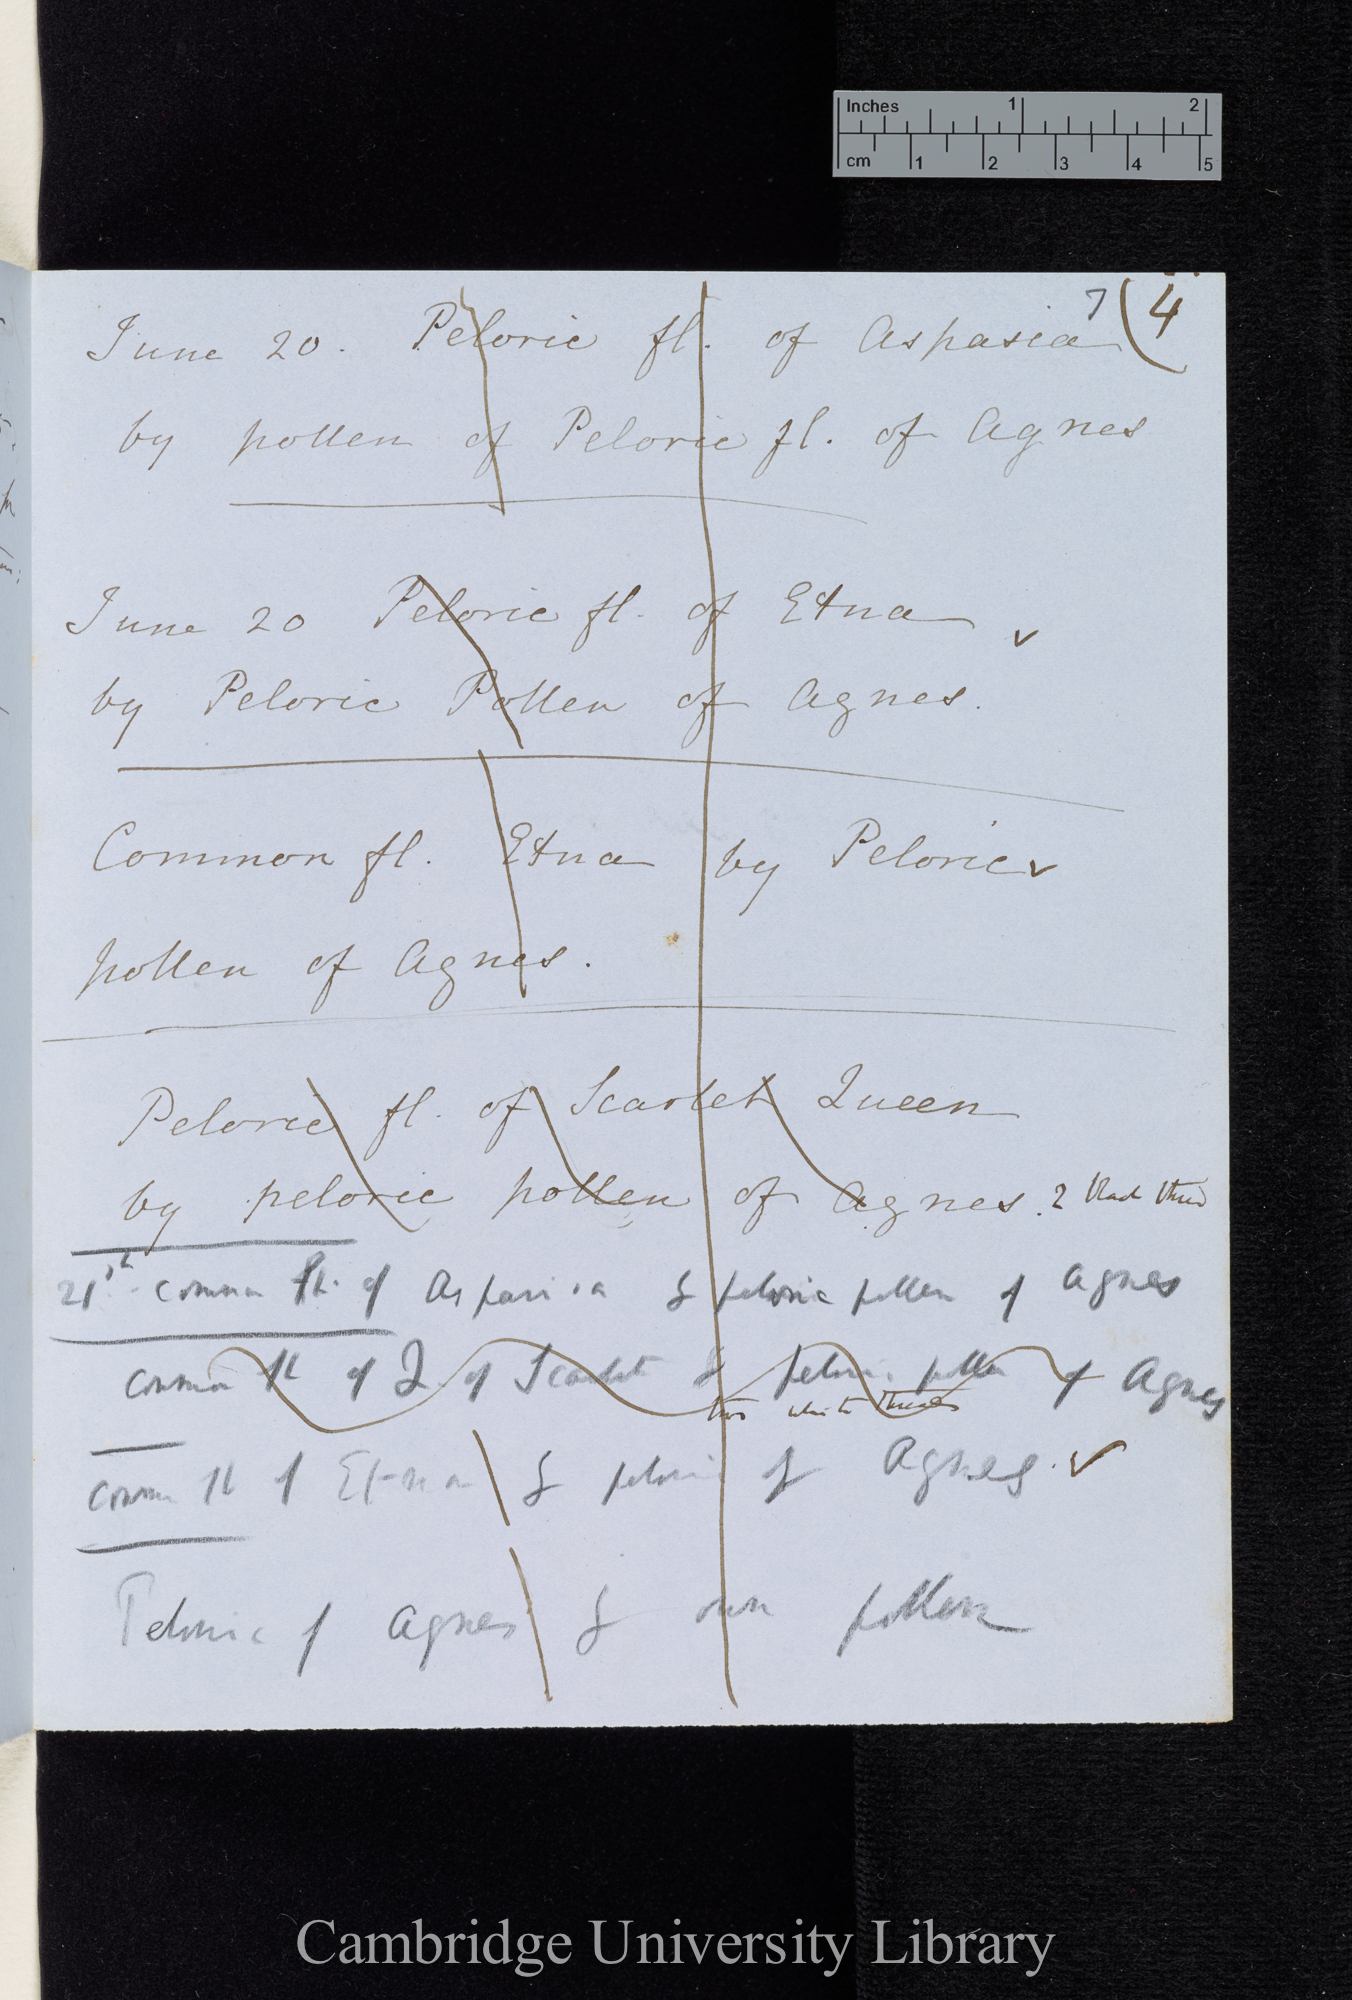 Inches 1 2
cm 1 2 3 4 5
7 (4
June 20. Peloric fl. of Aspasia
by pollen of Peloric fl. of Agnes
June 20 Peloric fl. of Etna ✓
by Peloric Pollen of Agnes.
Common fl. Etna by Peloric ✓
pollen of Agnes.
Peloric fl. of Scarlet Queen
by peloric pollen of Agnes. 2 black
21st common fl. of Aspasia & peloric pollen of Agnes
Common fl of Q. of Scarlet & peloric pollen of Agnes
two white threads
Common fl of Etna & peloric of Agnes. ✓
Peloric of Agnes & own pollen
Cambridge University Library